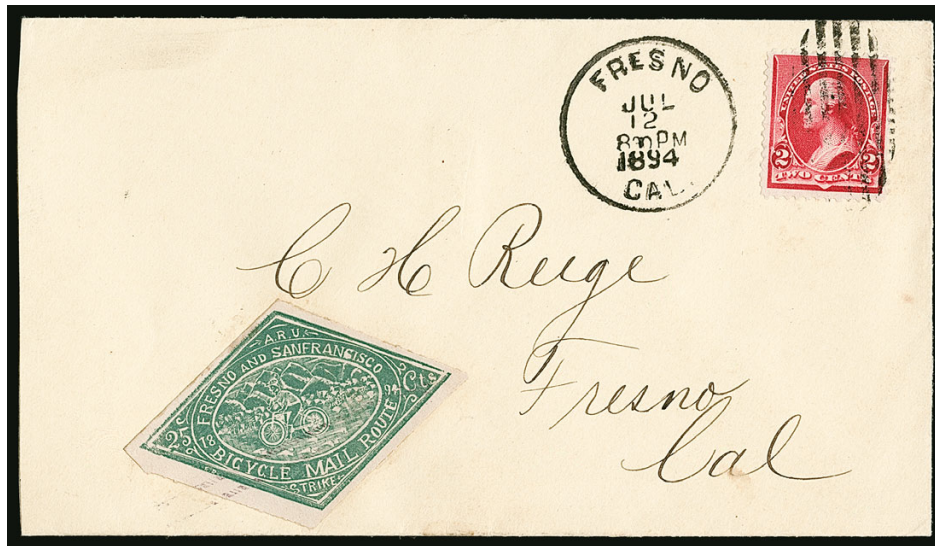 FRESNO
JUL
12
8 PM
1894
CAL.
UNITED STATES POSTAGE
2 2
TWO CENTS
C H Ruge
Fresno
Cal
A.R.U.
FRESNO AND SANFRANCISCO
25 Cts
18 94
BICYCLE MAIL ROUTE
STRIKE